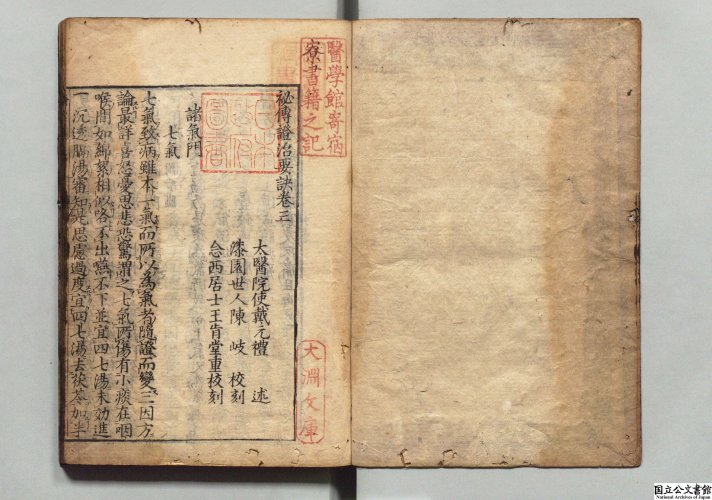 醫學館寄宿
寮書籍之記
大淵文庫
祕傳證治要訣卷三
太醫院使戴元禮 述
漆園世人陳岐 校刻
念西居士王肯堂重校刻
日本
政府
圖書
諸氣門
七氣
七氣致病雖本一氣而所以為氣者隨證而變三因方
論最詳喜怒憂思悲恐驚謂之七氣所傷有小痰在咽
喉間如綿絮相似咯不出嚥不下並宜四七湯未効進
沉透膈湯審知是思慮過度宜四七湯去茯苓加半
国立公文書館
National Archives of Japan